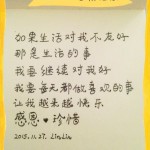 如果生活对我不友好
那是生活的事
我要继续对我好
我要每天都做喜观的事
让我越来越快乐
感恩♥珍惜
2015.11.27. LinLin